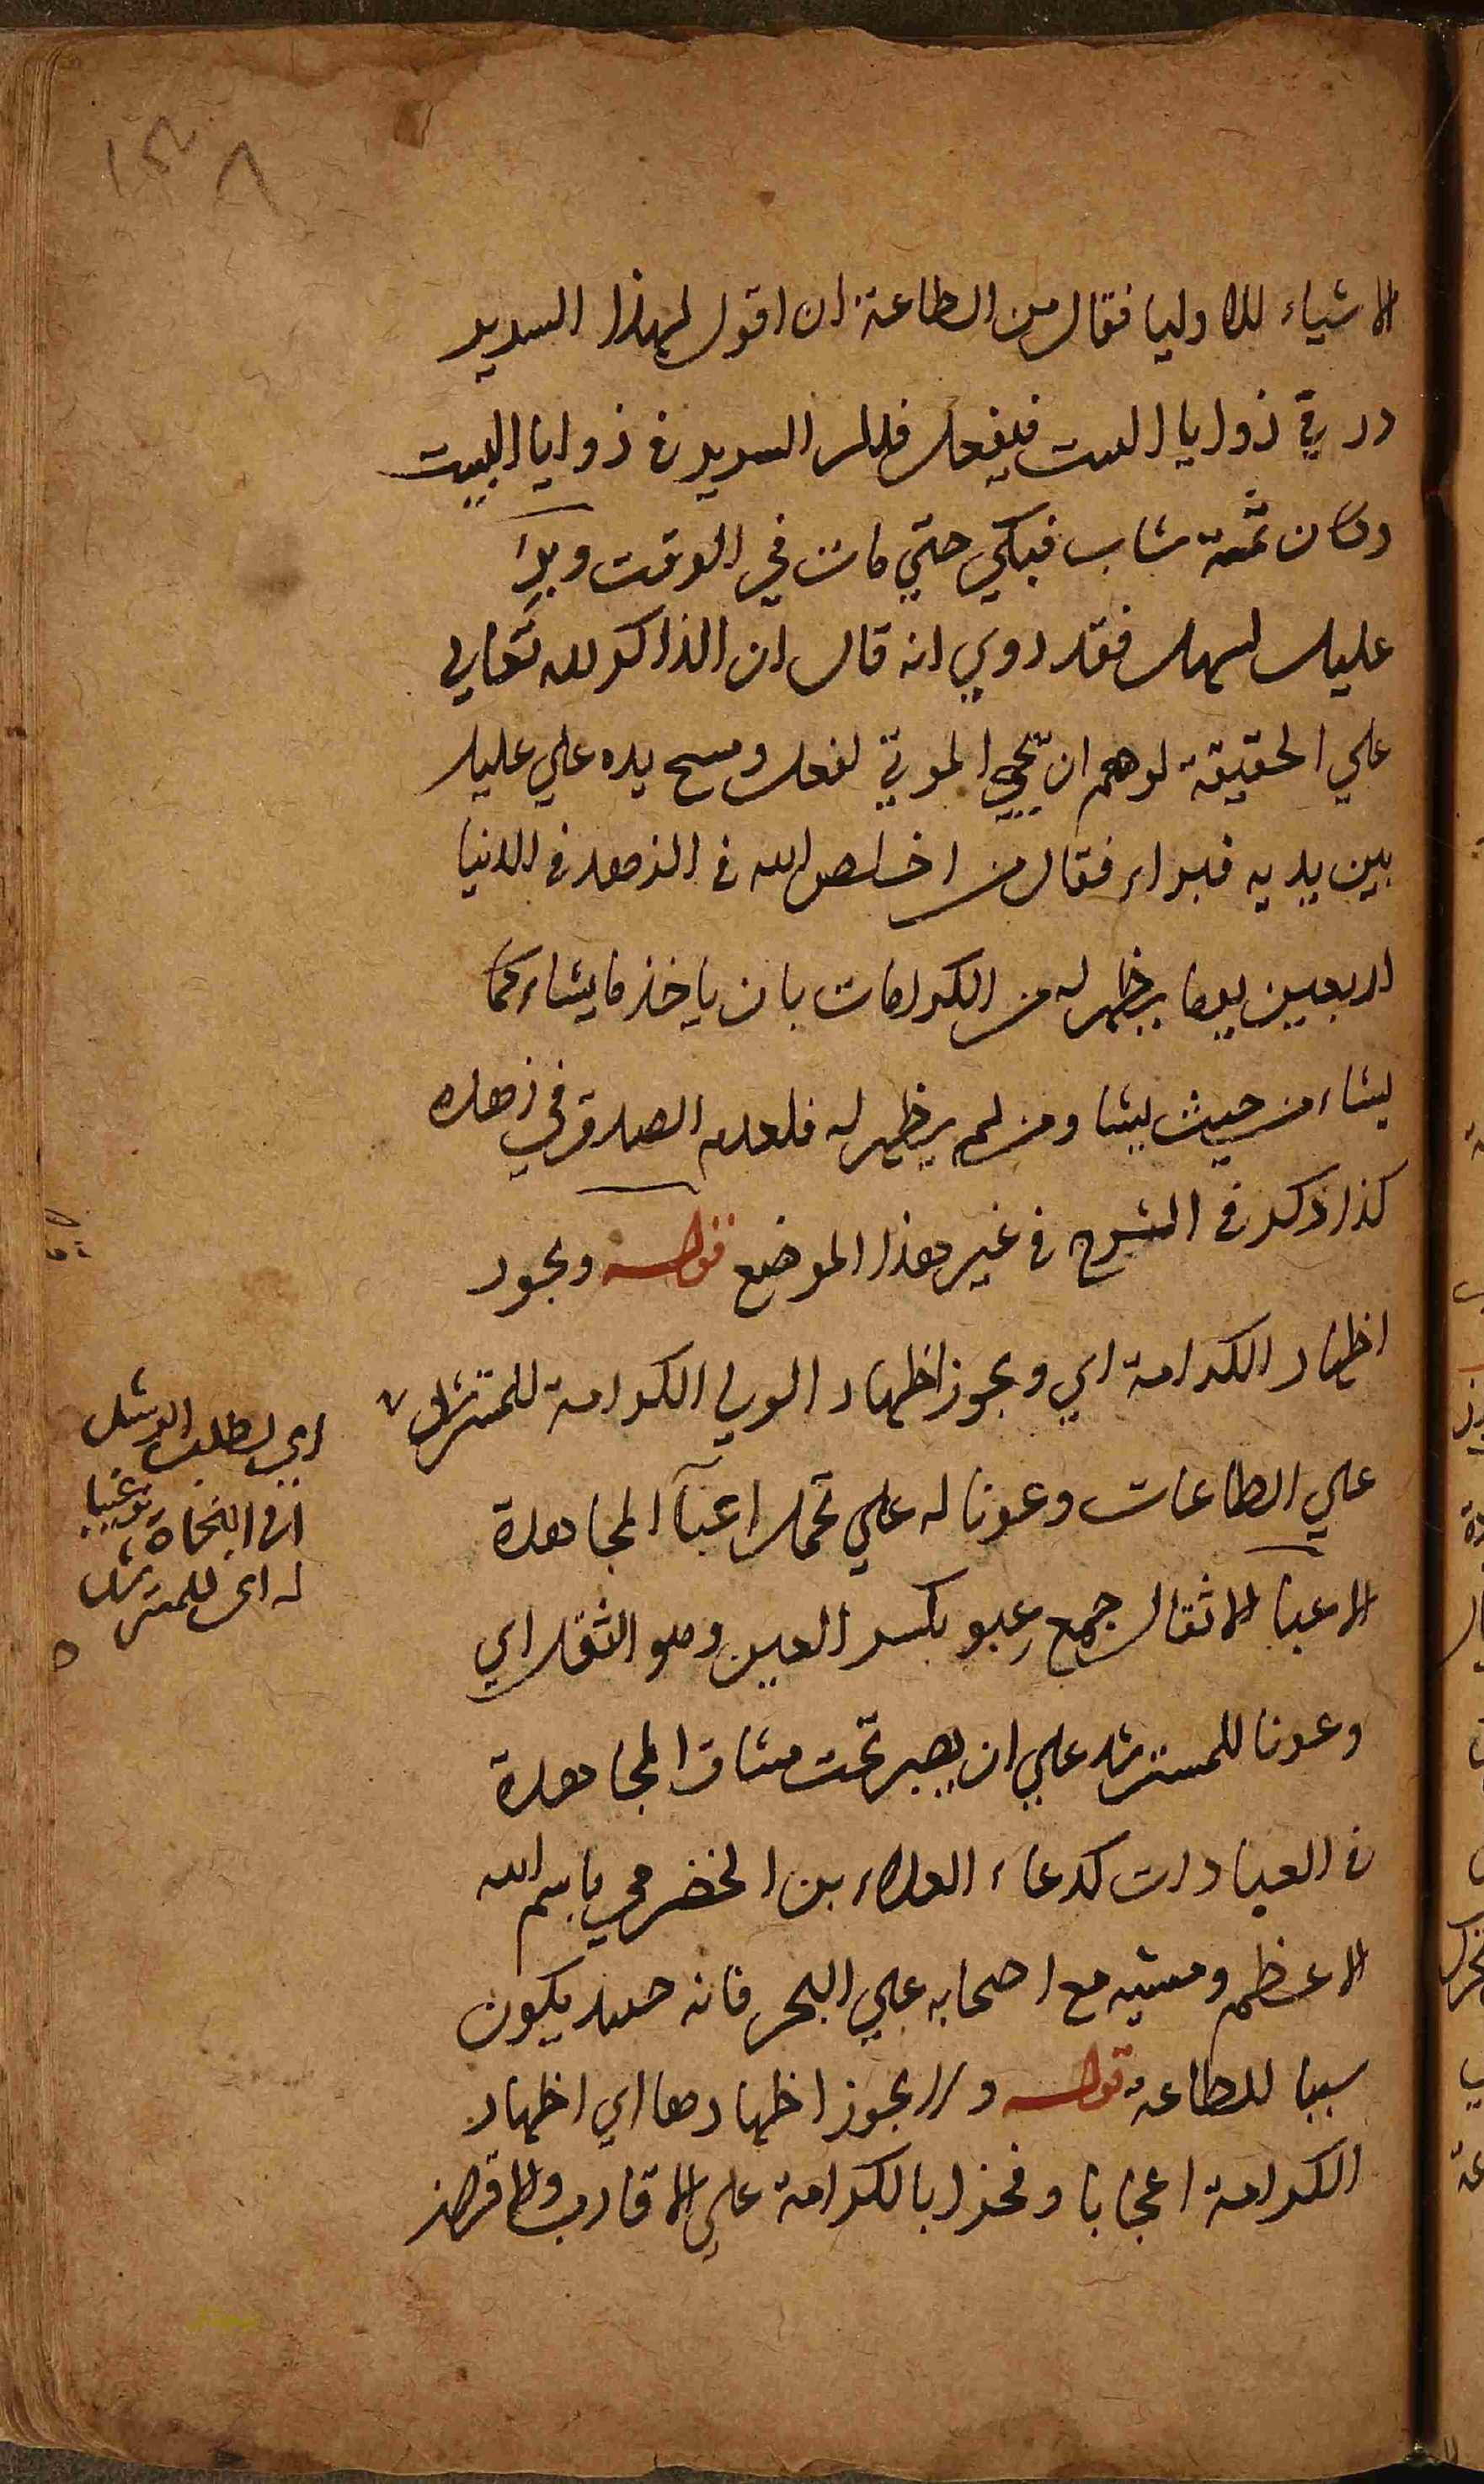 ١٣٨
الاشياء للاوليا فقال من الطاعة ان اقول لهذا السرير
در في زوايا البيت فيفعل فدار السرير في زوايا البيت
وكان ثمة شاب فبكي حتي مات في الوقت وبرا
عليل لسهل فقد روي انه قال ان الذاكر لله تعالي
علي الحقيقة لو هم ان يحيي الموتي لفعل ومسح يده علي عليل
بين يديه فبراء فقال من اخلص لله في الزهد في الدنيا
اربعين يوما يظهر له من الكرامات بان ياخذ ما يشاء كما
يشاء من حيث يشا ومن لم يظهر له فلعدم الصدق في زهده
كذا ذكر في الشرح في غير هذا الموضع قوله ويجوز
اظهار الكرامة اي ويجوز اظهار الولي الكرامة للمسترشد
علي الطاعات وعونا له علي تحمل اعبآ المجاهدة
الاعبا الاثقال جمع عبو بكسر العين وهو الثقل اي
وعونا للمسترشد علي ان يصبر تحت مشاق المجاهدة
في العبادات كدعاء العلاء بن الخضرمي باسم الله
الاعظم ومشيه مع اصحابه علي البحر فانه حينئذ يكون
سببا للطاعة قوله ولا يجوز اظهارها اي اظهار
الكرامة اعجابا وفخرا بالكرامة علي الاقارب والاقران
اي لطلب الرشد
في النجاة ترغيبا
له اي للمسترشد